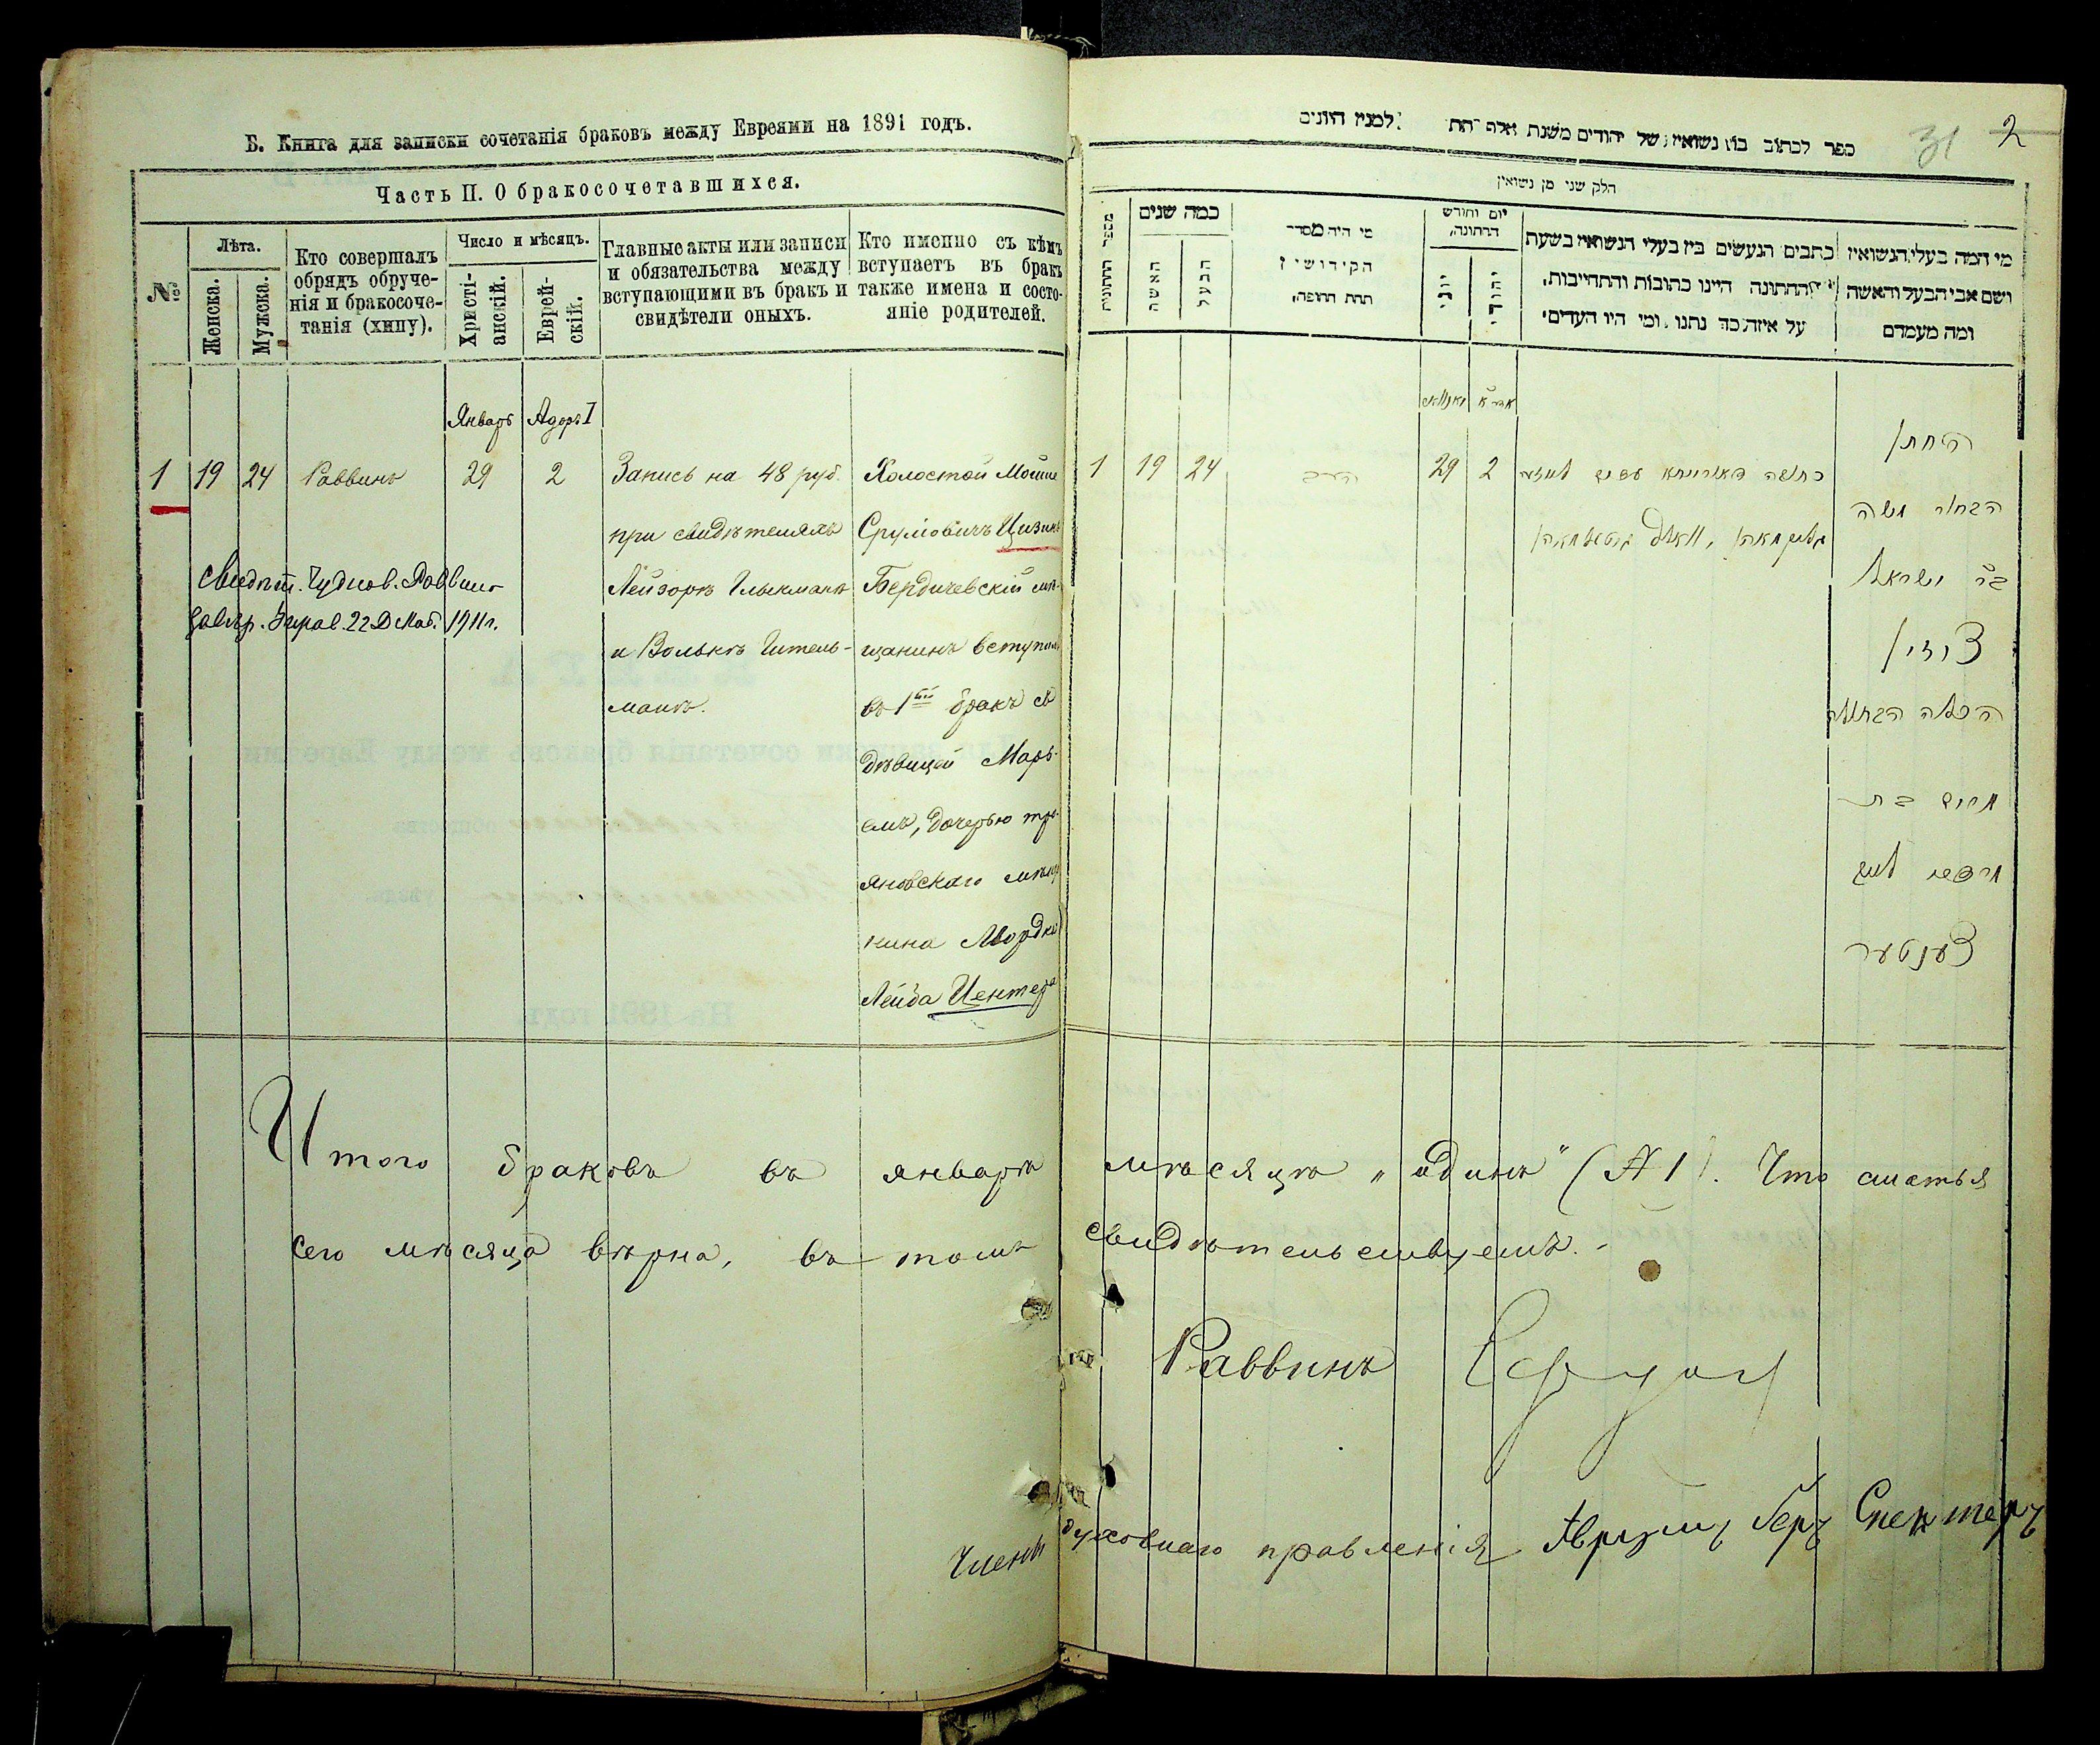 Б. Книга для записки сочетанія браковъ между Евреями на 1891 годъ.
Часть II. О бракосочетавшихся.
№
Лѣта.
Женска.
Мужска.
Кто совершалъ
обрядъ обруче-
нія и бракосоче-
танія (хипу).
Число и мѣсяцъ.
Христі-
анскій.
Еврей-
скій.
Главные акты или записи
и обязательства между
вступающими въ бракъ и
свидѣтели оныхъ.
Кто именно съ кѣмъ
вступаетъ въ бракъ
также имена и состо-
яніе родителей.
Январь Адоръ I
1 19 24 Раввинъ 29 2
Запись на 48 руб.
при свидѣтеляхъ
Лейзоръ
и Волькъ Гитель-
манъ.
Холостой Мойше
Срулiовичъ Цизинъ
Бердичевскій мѣ-
щанинъ вступилъ
въ 1ый бракъ съ
дѣвицей Марь-
емъ, дочерью тро-
яновскаго мѣщ
нина Мордка
Лейба Центера
Свидѣт. Чуднов. Раввин
22 Декаб. 1911 г.
31 2
ספר לכתוב בו נשואין של יהודים משנת אלף תת למנין היונים
חלק שני מן נשואין
מספר החתונות
כמה שנים
האשה
הבעל
מי היה מסדר
הקידושין
תחת החופה.
יום וחודש
החתונה,
יוני
יהודי
כתבים הנעשים בין בעלי הנשואין בשעת
החתונה היינו כתובות והתחייבות.
על איזה כך נתנו. ומי היו העדים.
מי המה בעלי הנשואין
ושם אבי הבעל והאשה
ומה מעמדם
יאנואר אדר א
1 19 24 הרב 29 2
כתובה דאורייתא
החתן
הבחור משה
בר ישראל
ציזין
הכלה הבתולה
מרים בת
מרדכי ליב
צענטער
Итого браковъ въ январѣ мѣсяцѣ „одинъ“ (№ 1). Что статья
сего мѣсяца вѣрна, въ томъ свидѣтельствуемъ.
Раввинъ
Члены духовнаго правленія Аврумъ Беръ Спекторъ